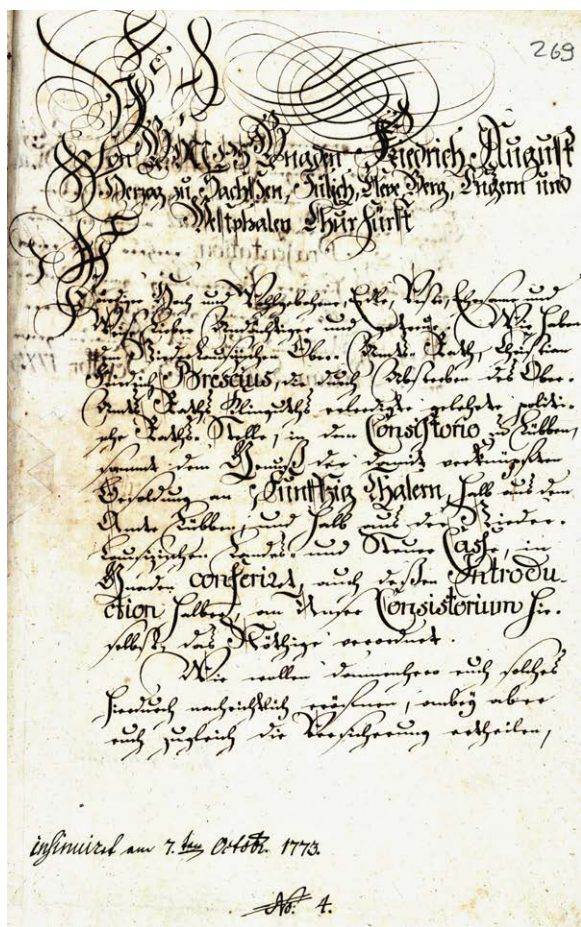 269
Von GOTTES Gnaden Friedrich August
Herzog zu Sachßen, Jülich, Cleve, Berg, Engern und
Westphalen Churfürst
Würdiger, Hoch und Wohlgebohrne, Edle, Veste, Ehrsame und
Weise, Liebe Andächtiger und getreue. Wir haben
dem Niederlausizischen Ober-Amts-Rath, Christian
Friedrich Brescius, die durch Absterben des Ober-
Amts-Raths Klinguths erledigte gelehrte politi-
sche Raths-Stelle, in dem Consistorio zu Lübben,
sammt dem Genuß der damit verknüpften
Besoldung an Funffzig Thalern, halb aus dem
Amte Lübben, und halb aus der Nieder-
lausizischen Landes- und Steuer Casse, in
Gnaden conferirt, auch deßen Introdu-
ction halber, an Unser Consistorium hie-
selbst, das Nöthige verordnet.
Wir wollen dannenhero euch solches
hierdurch nachrichtlich eröfnen, anbey aber
euch zugleich die Versicherung ertheilen,
insinuiret am 7. ten Octobr. 1773.
No. 4.